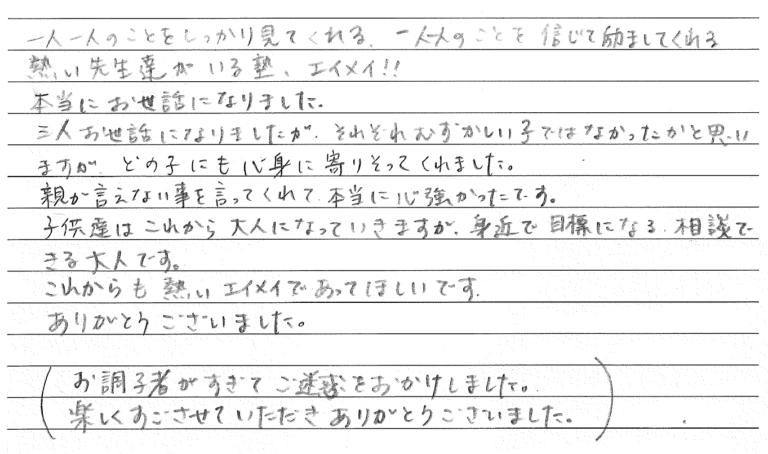 一人一人のことをしっかり見てくれる、一人一人のことを信じて励ましてくれる
熱い先生達がいる塾、エイメイ!!
本当にお世話になりました。
三人お世話になりましたが、それぞれむずかしい子ではなかったかと思い
ますが、どの子にも心身に寄りそってくれました。
親が言えない事を言ってくれて、本当に心強かったです。
子供達はこれから大人になっていきますが、身近で目標になる、相談で
きる大人です。
これからも熱いエイメイであってほしいです。
ありがとうございました。
(お調子者がすぎてご迷惑をおかけしました。
楽しくすごさせていただきありがとうございました。)